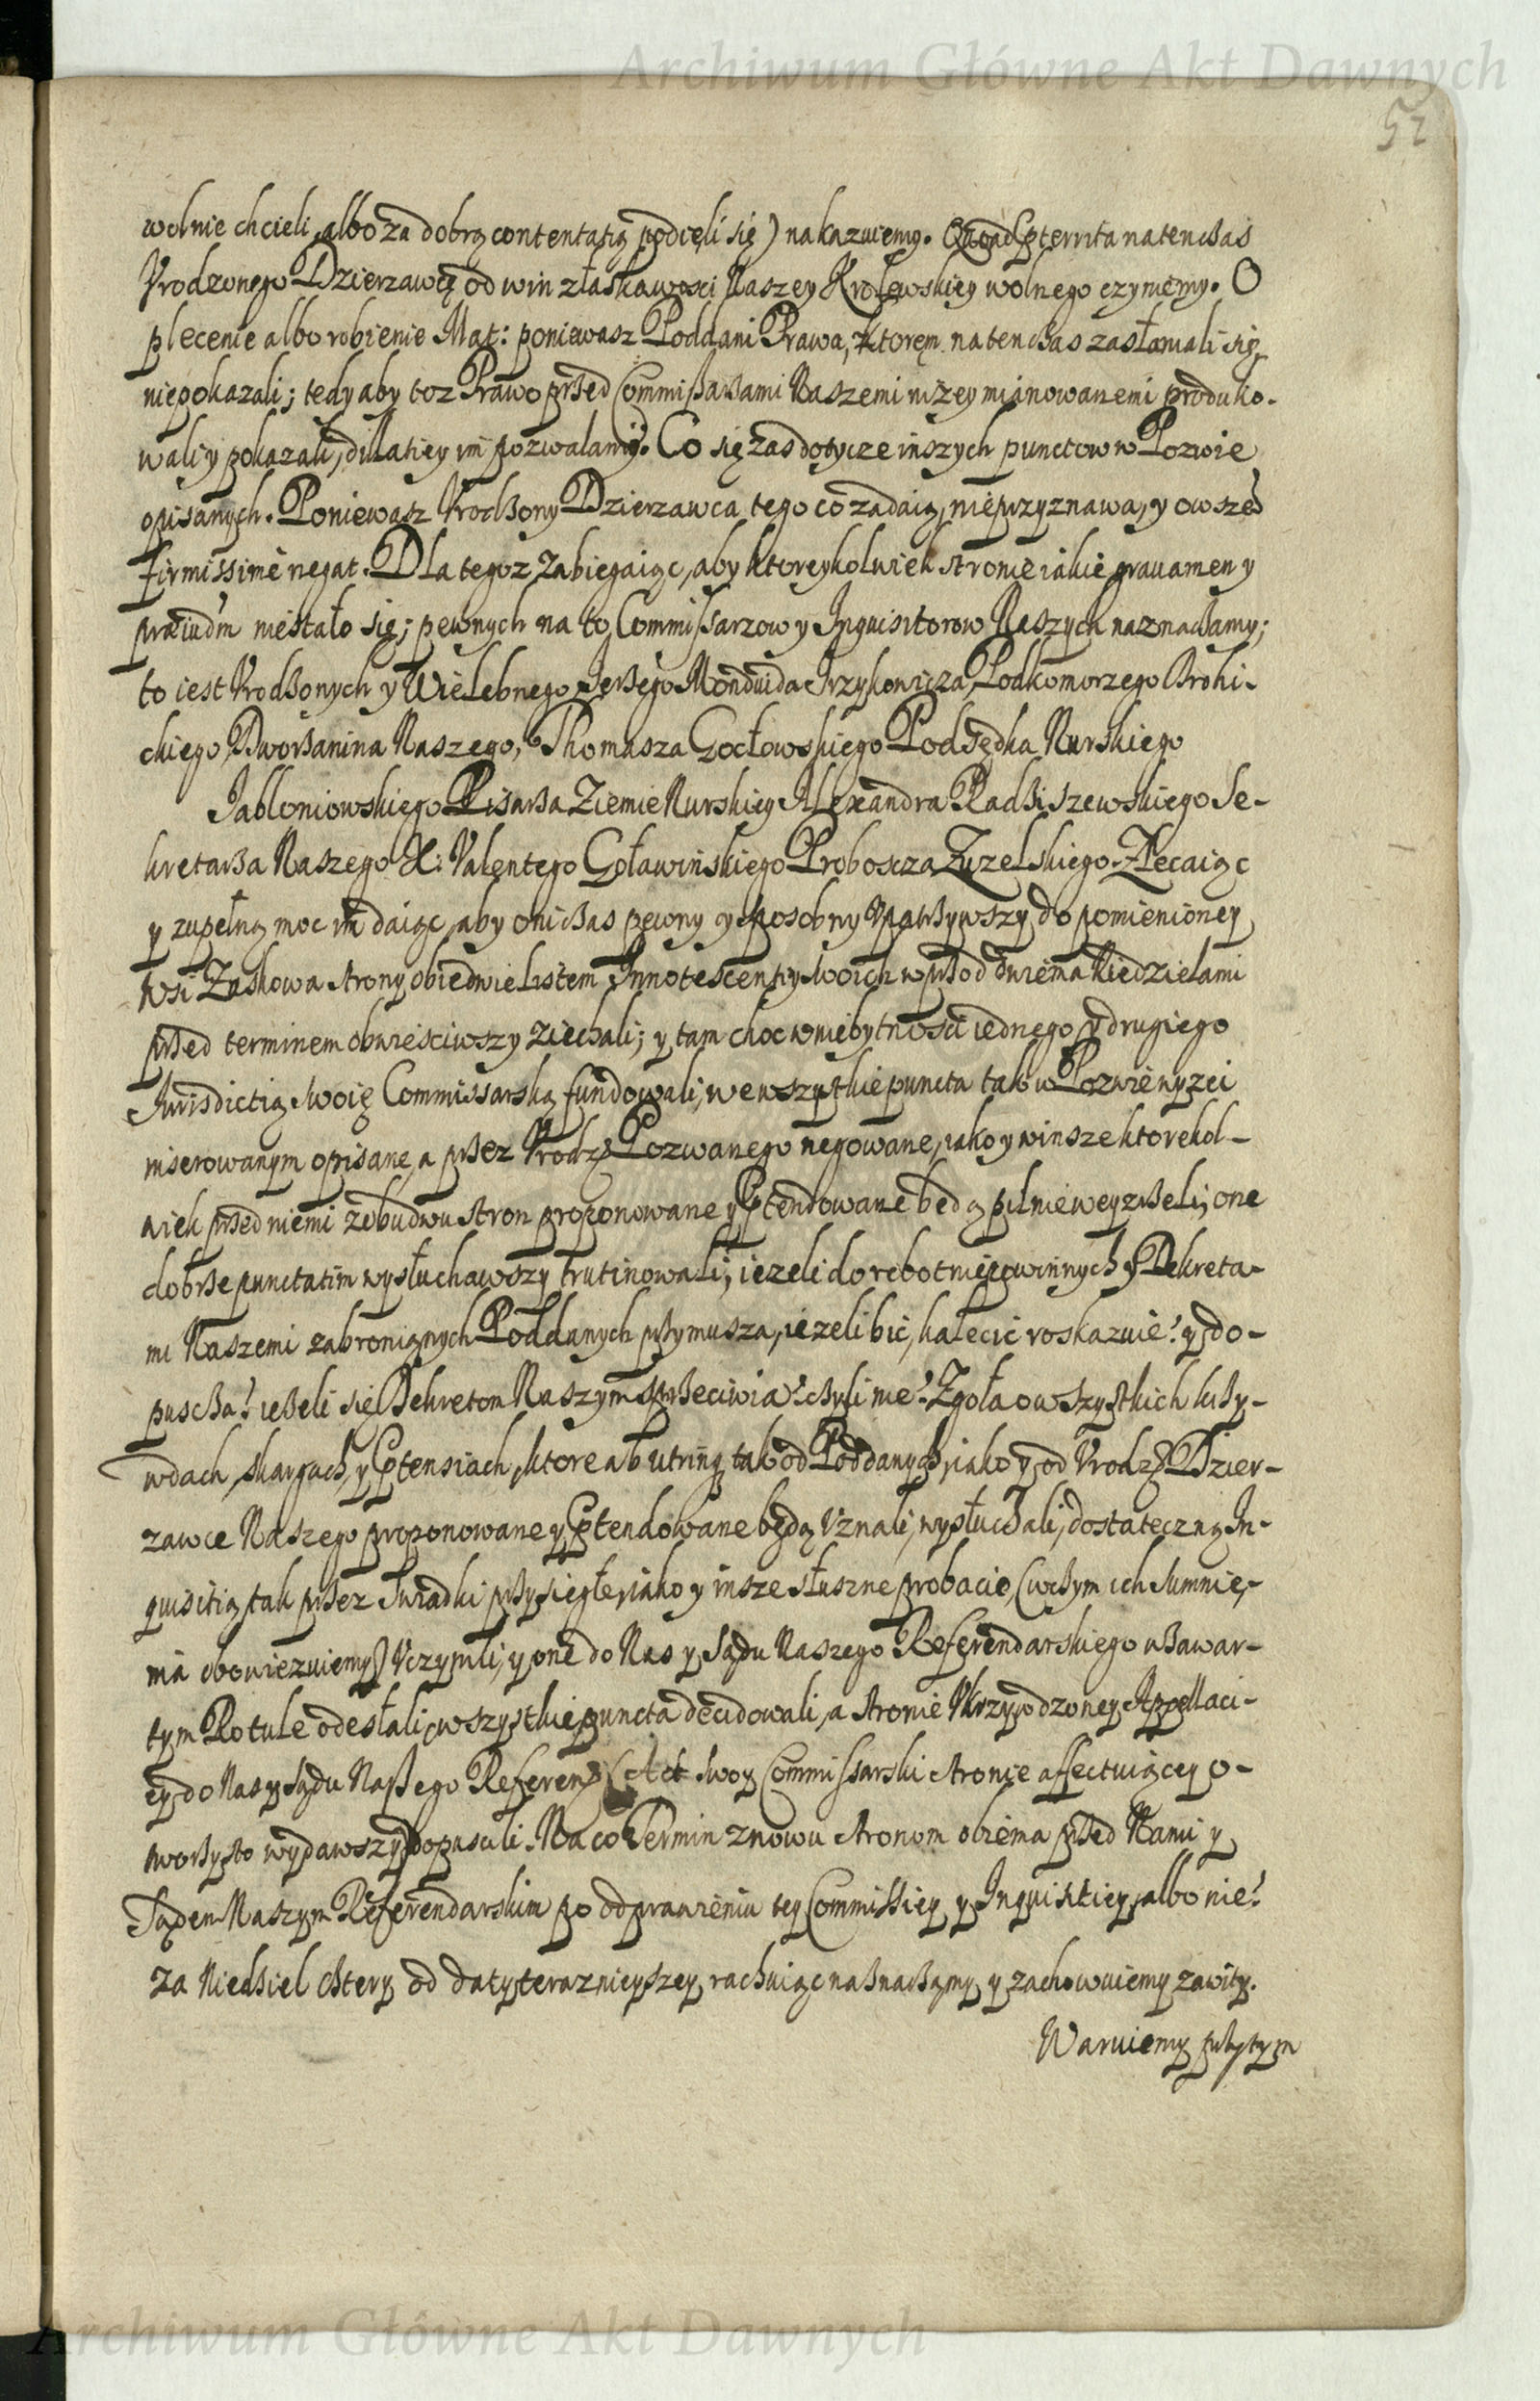 Archiwum Główne Akt Dawnych
52
wolnie chcieli, albo za dobrą contentatią podięli się) nakazuiemy. Quoad pterrita natenczas
Vrodzonego Dzierzawcę od win z łaskawosci Naszey Krolewskiey wolnego czyniemy. O
plecenie albo robienie Mat: poniewasz Poddani Prawa, ktorem natenczas zasłaniali się,
niepokazali; tedy aby toz Prawo przed Commissarzami Naszemi nizey mianowanemi produko-
wali y pokazali, dillatiey im pozwalamy. Co się zas dotycze inszych punctow w Pozwie
opisanych. Poniewasz Vrodzony Dzierzawca tego co zadaią, nieprzyznawa, y owszem
firmissime negat. Dla tegoz zabiegaiąc, aby ktoreykolwiek stronie iakie grauamen y
praeiudm niestało się; pewnych na to Commissarzow y Inquisitorow Naszych naznaczamy;
to iest Vrodzonych y Wielebnego Jerzego Monduida Irzykowicza Podkomorzego Brohi-
ckiego, Dworzanina Naszego, Thomasza Gocłowskiego Podsędka Nurskiego
Jabloniowskiego Pisarza Ziemie Nurskiey Alexandra Radziszewskiego Se-
kretarza Naszego X: Valentego Goławińskiego Proboscza Zuzelskiego. Zlecaiąc
y zupełną moc im daiąc, aby oni czas pewny y sposobny vpatrzywszy, do pomienioney
Wsi Zaskowa strony obiedwie Listem Innotescentiy swoich w przod dwiema Niedzielami
przed terminem obwiesciwszy ziechali; y tam choc w niebytnosci iednego y drugiego
Iurisdictią swoię Commissarską fundowali, we wszystkie puncta tak w Pozwie wyzei
inserowanym opisane, a przez Vrodz: Pozwanego negowane, iako y winsze ktorekol-
wiek przed niemi z obudwu stron proponowane y ptendowane będą pilnie weyzrzeli, one
dobrze punctatim wysłuchawszy trutinowali; iezeli do robot niepowinnych y Dekreta-
mi Naszemi zabronionych Poddanych przymusza, iezeli bić, kaleczić roskazuie? y do-
puscza? iezeli się Dekretom Naszym sprzeciwia? czyli nie? Zgoła o wszystkich krzy-
wdach, skargach, y ptensiach, ktore ab utrinq tak od Poddanych, iako y od Vrodz: Dzier-
zawce Naszego proponowane y ptendowane będą vznali, wysłuchali, dostateczną In-
quisitią tak przez Swiadki przysięgłe, iako y insze słuszne probacie, (w czym ich sumnie-
nia obowiezuiemy) Vczynili, y one do Nas y Sądu Naszego Referendarskiego w zawar-
tym Rotule odesłali, wszystkie puncta decidowali, a stronie Vkrzywdzoney Appellaci-
ey do Nas y Sądu Naszego Referen: (Act swoy Commissarski stronie affectuiącey o-
tworzysto wydawszy) dopuscili. Na co Termin znowu stronom obiema przed Nami y
Sądem Naszym Referendarskim po odprawieniu tey Commissiey y Inquisitiey, albo nie?
za Niedziel cztery od daty terazniejszey rachuiąc naznaczamy y zachowuiemy zawity.
Waruiemy przytym
Archiwum Główne Akt Dawnych